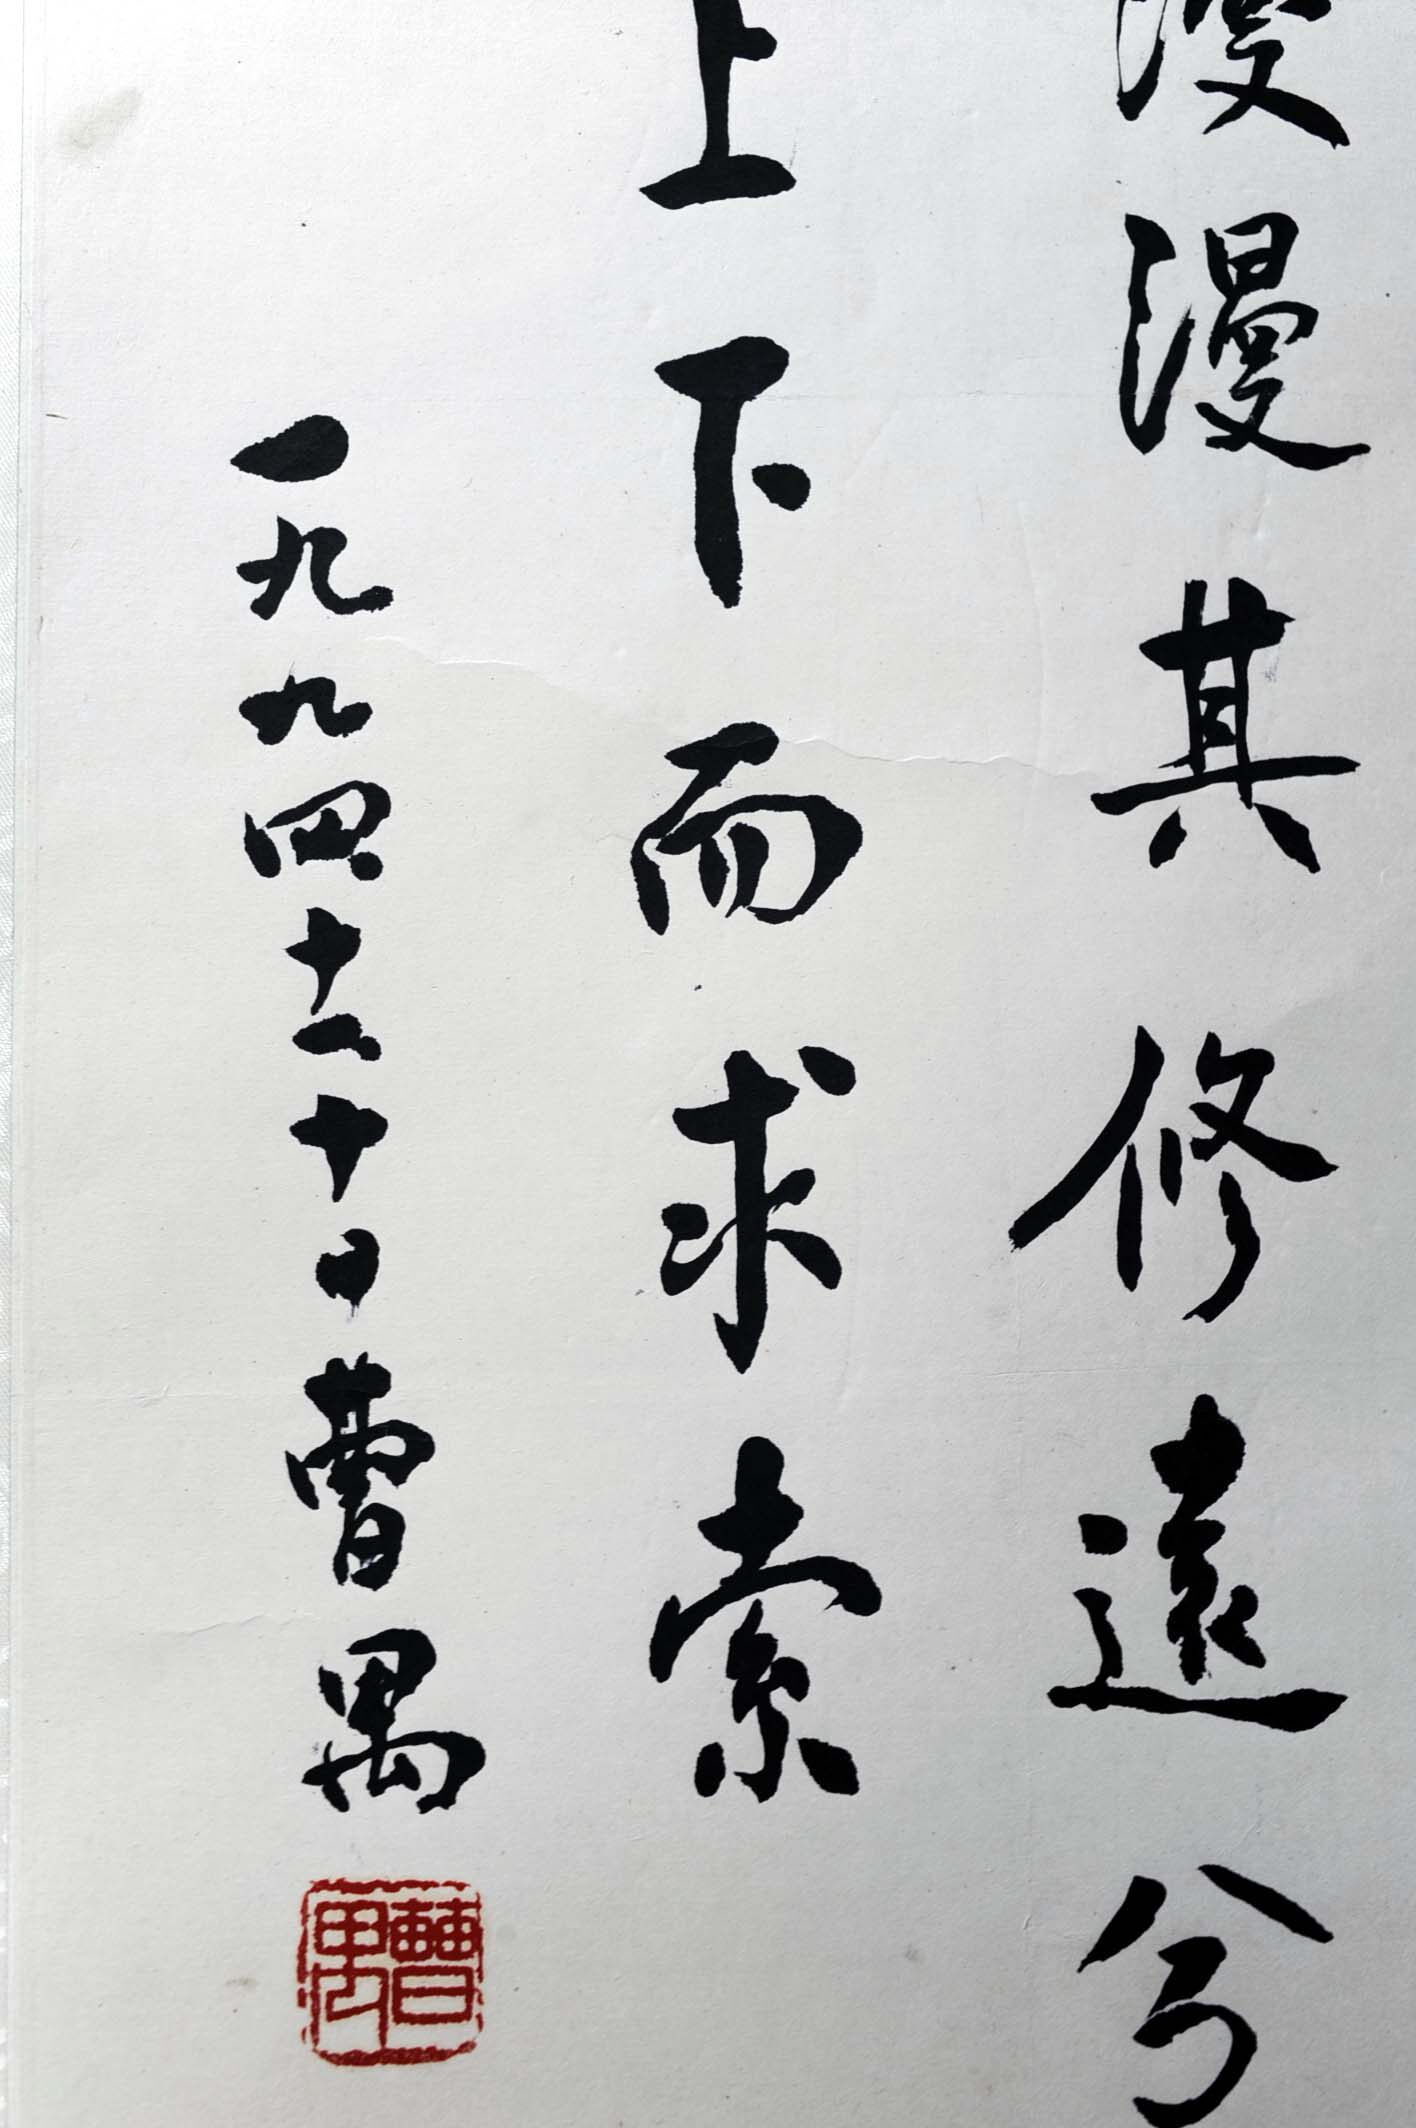 漫漫其修遠兮
上下而求索
一九九四十一十日曹禺
曹禺